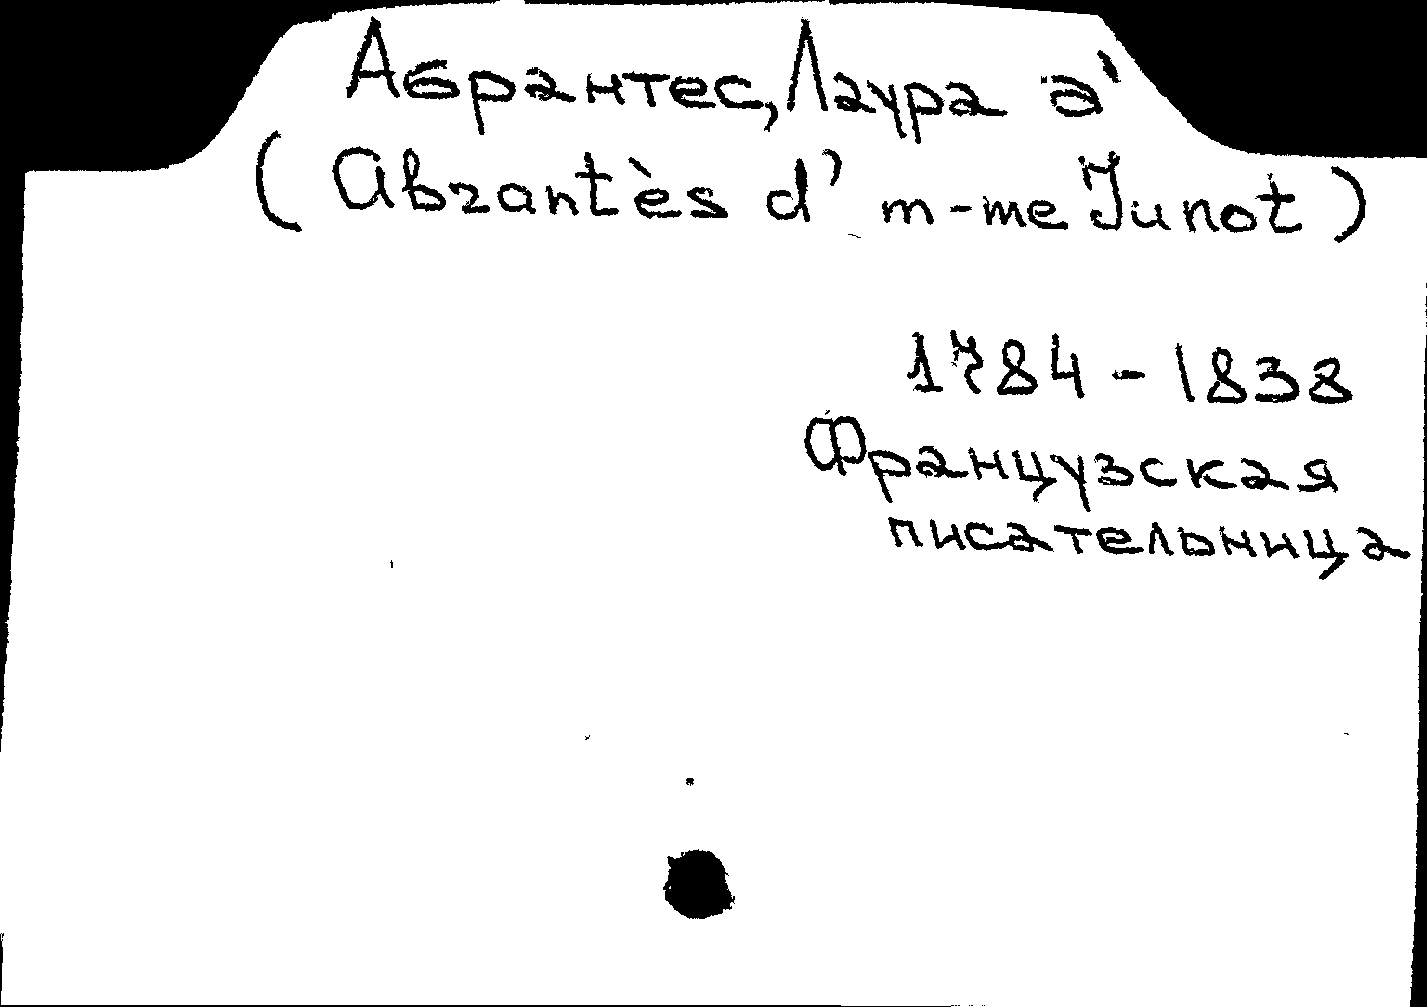 Абрантес, Лаура д'
(Abrantès d' m-me Junot)
1784 - 1838
Французская
писательница